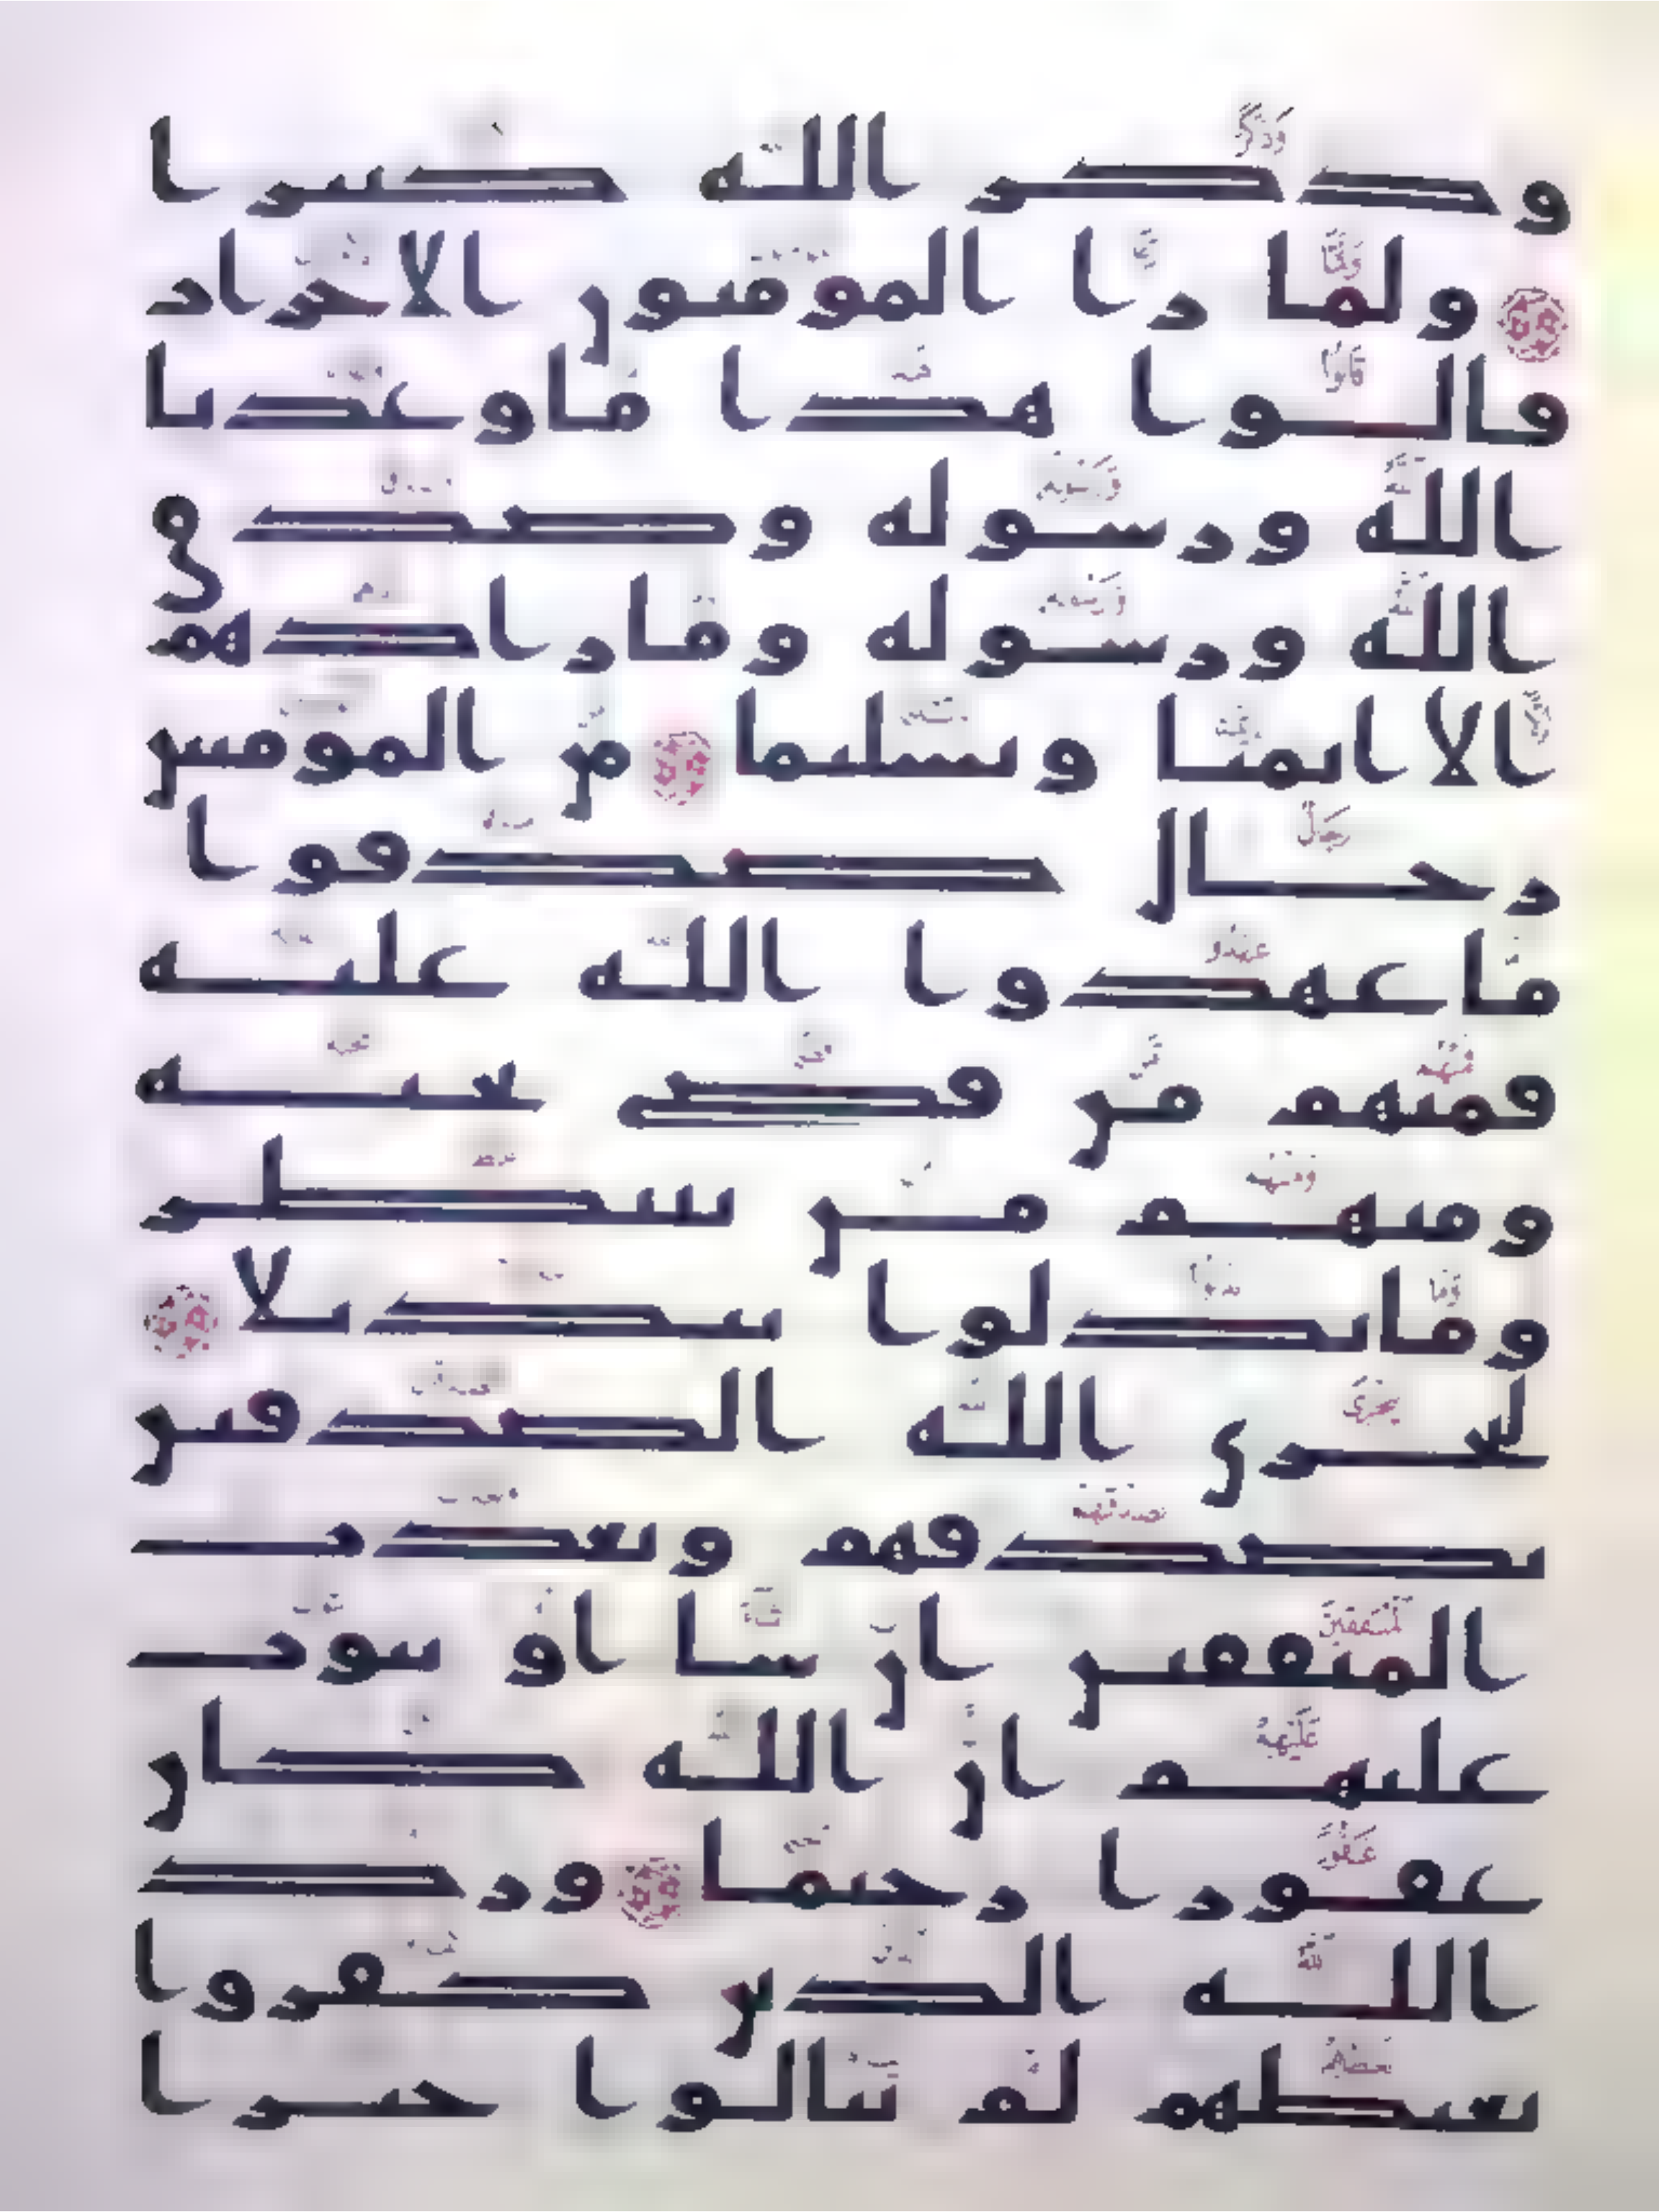 وذكر الله كثيرا
ولما را المومنون الاحزاب
قالوا هذا ما وعدنا
الله ورسوله وصدق
الله ورسوله وما زادهم
الا ايمنا وتسليما من المومنين
رجال صدقوا
ما عهدوا الله عليه
فمنهم من قضى نحبه
ومنهم من ينتظر
وما بدلوا تبديلا
ليجزى الله الصدقين
بصدقهم ويعذب
المنفقين ان شا او يتوب
عليهم ان الله كان
غفورا رحيما ورد
الله الذين كفروا
بغيظهم لم ينالوا خيرا